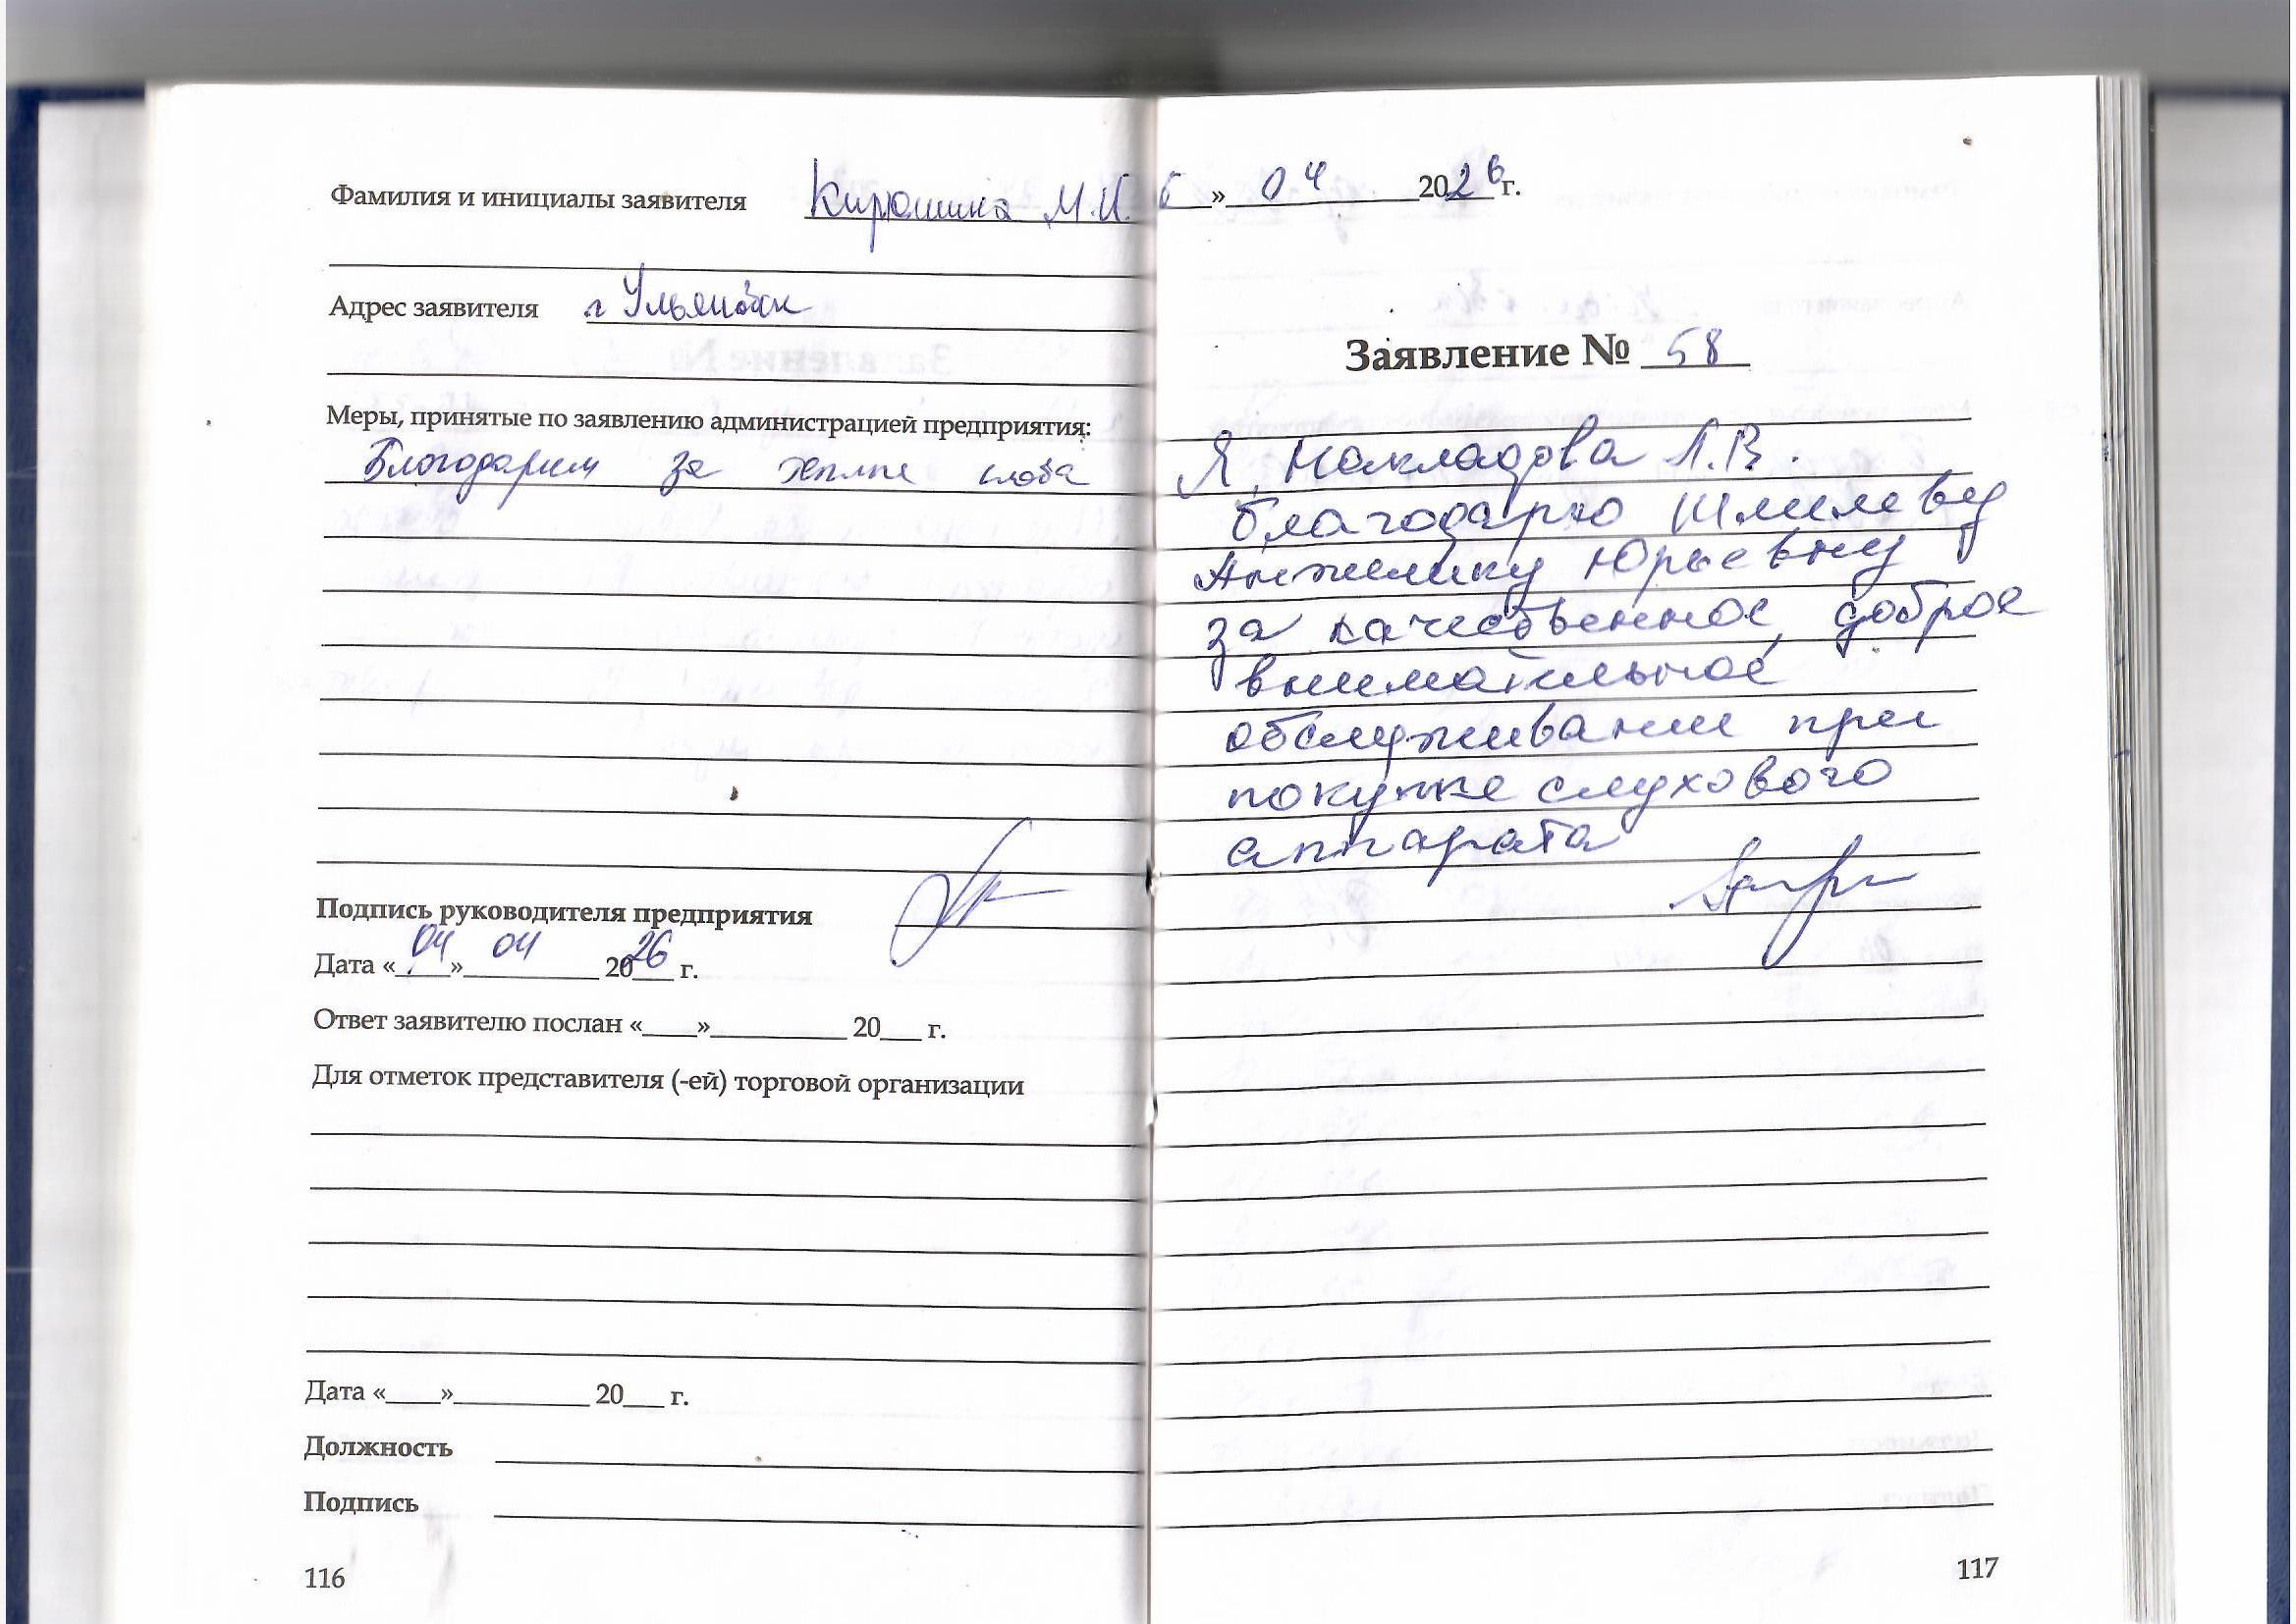 Фамилия и инициалы заявителя Кирюшина М.И.
Адрес заявителя г Ульяновск
Меры, принятые по заявлению администрацией предприятия:
Благодарим за теплые слова
Подпись руководителя предприятия
Дата «04» 04 2026 г.
Ответ заявителю послан «___»__________ 20___ г.
Для отметок представителя (-ей) торговой организации
Дата «____»__________ 20___ г.
Должность
Подпись
116
6 » 04 2026 г.
Заявление № 58
Я, Накладова Л.В.
благодарю Шмилеву
Анжелику Юрьевну
за качественное, доброе
внимательное
обслуживание при
покупке слухового
аппарата
117